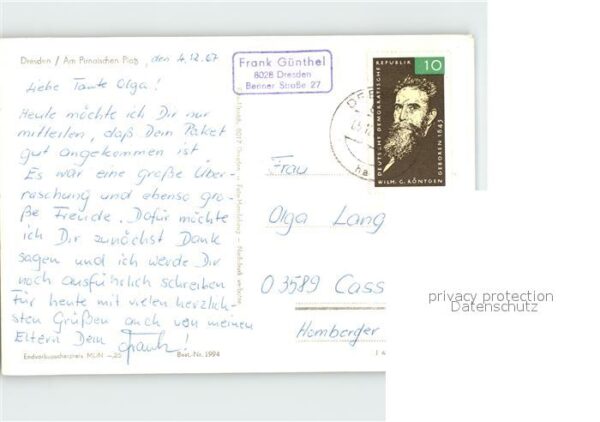 Dresden / Am Pirnaischen Platz, den 4.12.67
Liebe Tante Olga!
Heute möchte ich Dir nur
mitteilen, daß Dein Paket
gut angekommen ist
Es war eine große Über-
raschung und ebenso gro-
ße Freude. Dafür möchte
ich Dir zunächst Dank
sagen und ich werde Dir
noch ausführlich schreiben
Für heute mit vielen herzlich-
sten Grüßen auch von meinen
Eltern Dein Frank!
Endverbraucherpreis MDN -,25 Best.-Nr. 1994
Frank Günthel
8028 Dresden
Berliner Straße 27
DEUTSCHE DEMOKRATISCHE REPUBLIK 10
GEBOREN 1845
WILH. C. RÖNTGEN
Frau
Olga Lang
03589 Cass
Homberger
privacy protection
Datenschutz